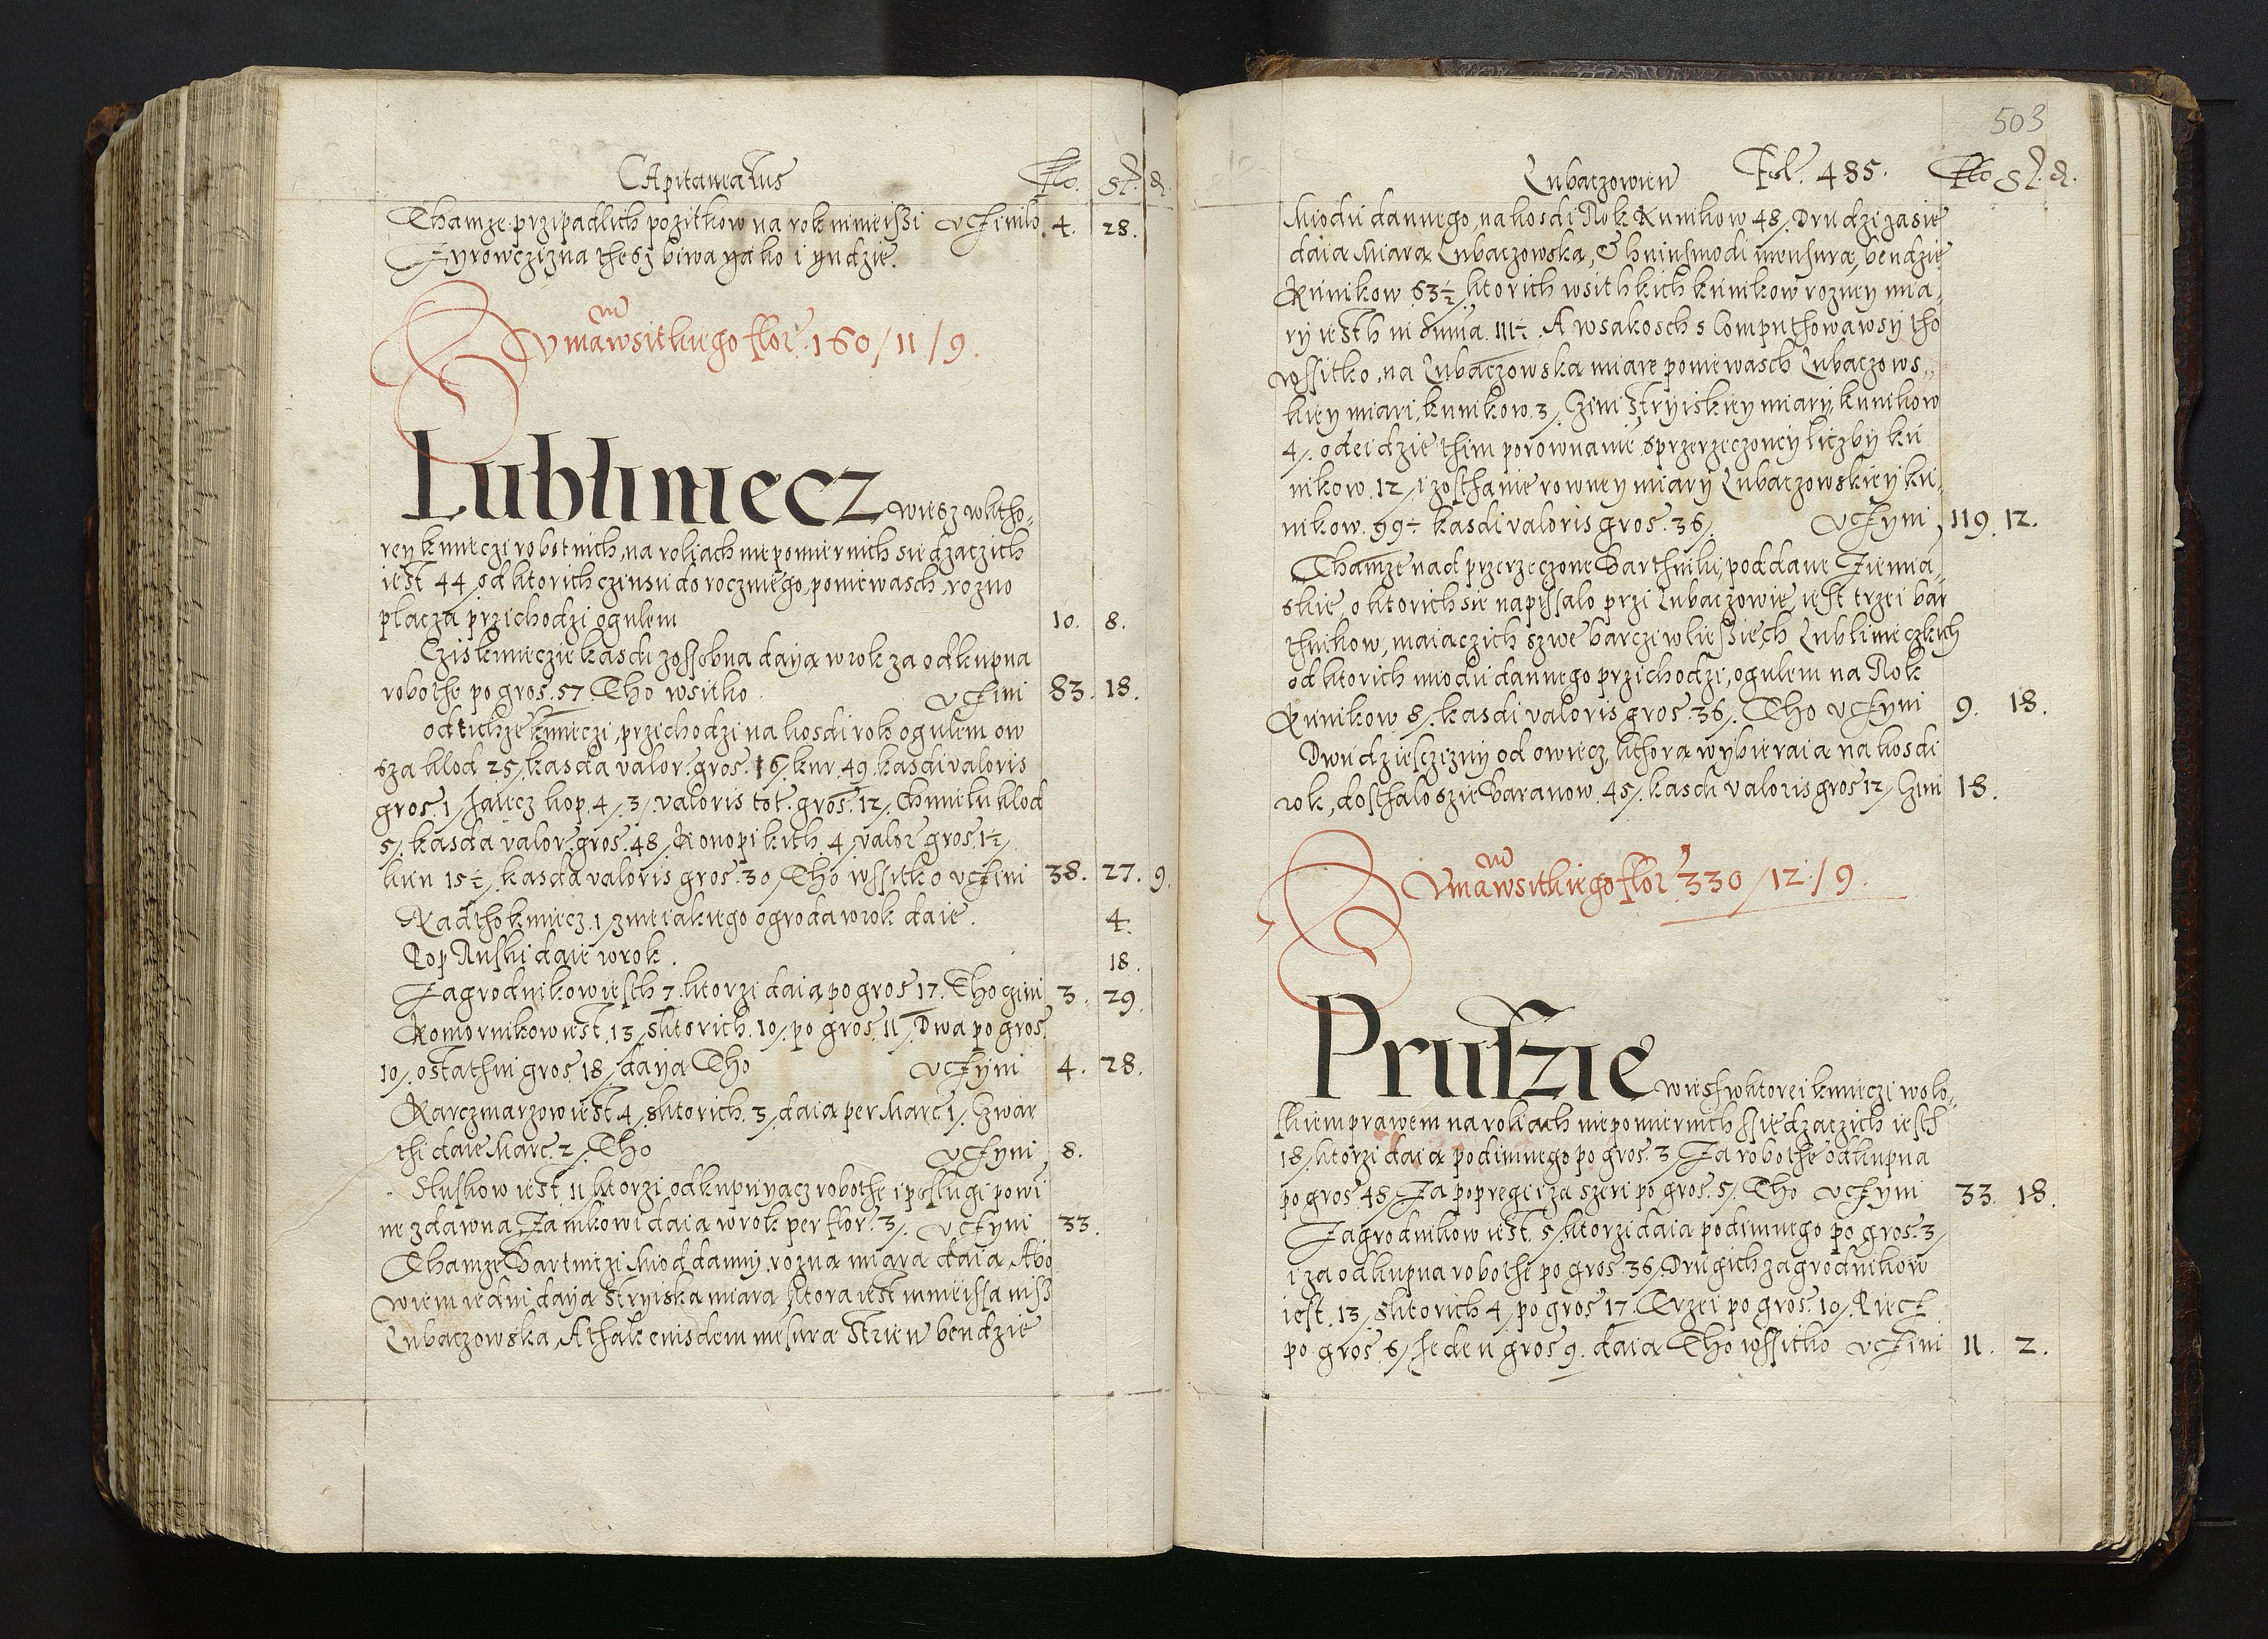 Capitaneatus Flo. gr. d.
Thamze przipadlich pozitkow na rok ninieiszi vczinilo. 4. 28.
Zyrowczizna thesz biwa yako i yndzie.
Summa wsitkiego flor. 160/11/9.
Lubliniecz wiesz wktho-
rey kmieczi robotnich, na roliach niepomiernich siedzaczich
iest 44, od ktorich czinsu dorocznego, poniewasch rozno
placza przichodzi ogulem 10. 8.
Czis kmieczie kasdi zossobna daya w rok za odkupna
robothe po gros. 57 Tho wsitko vczini 83. 18.
od tichze kmieczi, przichodzi na kosdi rok ogulem ow
sza klod 25/ kasda valor. gros. 16/ kur. 49. kasdi valoris
gros. 1/ Jaiecz kop. 4/3/. valoris tot. gros. 12/ Chmielu klod
5/. kasda valor. gros. 48/ Konopi kith. 4/ valor gros. 1½/
kun 15½/. kasda valoris gros. 30/ Tho wssitko vczini 38. 27. 9.
Nadtho kmiecz. 1/ z nieiakiego ogroda w rok daie. 4.
Pop Ruski daie w rok. 18.
Zagrodnikow iesth 7. ktorzi daia po gros 17. Tho czini 3. 29.
Komornikow iest. 13/ sktorich. 10/. po gros. 11/ Dwa po gros.
10/. ostathni gros. 18/ daya Tho vczyni 4. 28.
Karczmarzow iest 4/ sktorich. 3/ daia per Marc. 1/. Czwar
thi daie Marc. 2/. Tho vczyni 8.
Sluskow iest 11/ ktorzi odkupuyacz robothe i poslugi powi
ne zdawna Zamkowi daia w rok per flor. 3/. vczyni 33.
Thamze Bartniczi Miod danny, rozna miara daia Abo
wiem iedni daya Stryiska miara ktora iest mnieissa niss
Lubaczowska, A thak eiusdem mesura Strien bendzie
503
Lubaczowien Fol. 485. Flo gr. d.
Miodu dannego, na kosdi Rok Kunikow 48/. Drudzi zasie
daia Miara Lubaczowska, & huiusmodi mensura, bendzie
Kunikow 63½/ ktorich wsithkich kunikow rozney mia-
ry iesth in summa. 111½. A wsakosch s computhowawsy tho
wssitko, na Lubaczowska miare poniewasch Lubaczows-
kiey miari, kunikow. 3/ Czini Stryiskiey miary, kunikow
4/. odeidzie thim porownanie sprzerzeczoney liczby ku
nikow. 12/ i zosthanie rowney miary Lubaczowskiey ku-
nikow. 99½ kasdi valoris gros. 36/. vczyni, 119. 12.
Thamze nad przerzeczone Barthniki, poddane Ziemia-
skie, o ktorich sie napissalo przi Lubaczowie, iest trzei bar
thnikow, maiaczich szwe barczi w liessiech Lublinieczkich
od ktorich miodu dannego przichodzi, ogulem na Rok
Kunikow. 8/. kasdi valoris gros. 36/. Tho vczyni 9. 18.
Dwudziesczizny od owiecz, kthora wybieraia na kosdi
rok, dosthalo szie Baranow. 45/. kasdi valoris gros 12/ Czini 18.
Summa wsitkiego flor. 330/12/9.
Prusie wiesz wktorei kmieczi wolo-
skiem prawem na roliach niepomiernich ssiedzaczich iesth
18/ ktorzi daia podimnego po gros. 3/ Za robothe odkupna
po gros. 48/ Za popregi i za szeri po gros. 5/. Tho vczyni 33. 18.
Zagrodnikow iest. 5/ ktorzi daia podimnego po gros. 3/
i za odkupna robothe po gros. 36/. Drugich zagrodnikow
iest. 13/ sktorich 4/ po gros 17. Trzei po gros. 10/. Piecz
po gros. 6/ Jeden gros 9. daia Tho wssitko vczini 11. 2.